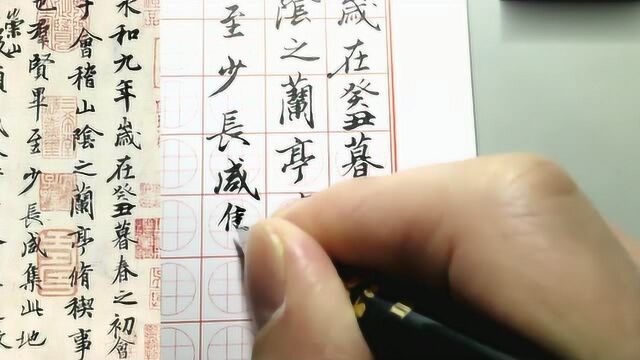 歲在癸丑暮
陰之蘭亭
至少長咸
永和九年歲在癸丑暮春之初會
于會稽山陰之蘭亭脩稧事
也羣賢畢至少長咸集此地
崇山
領